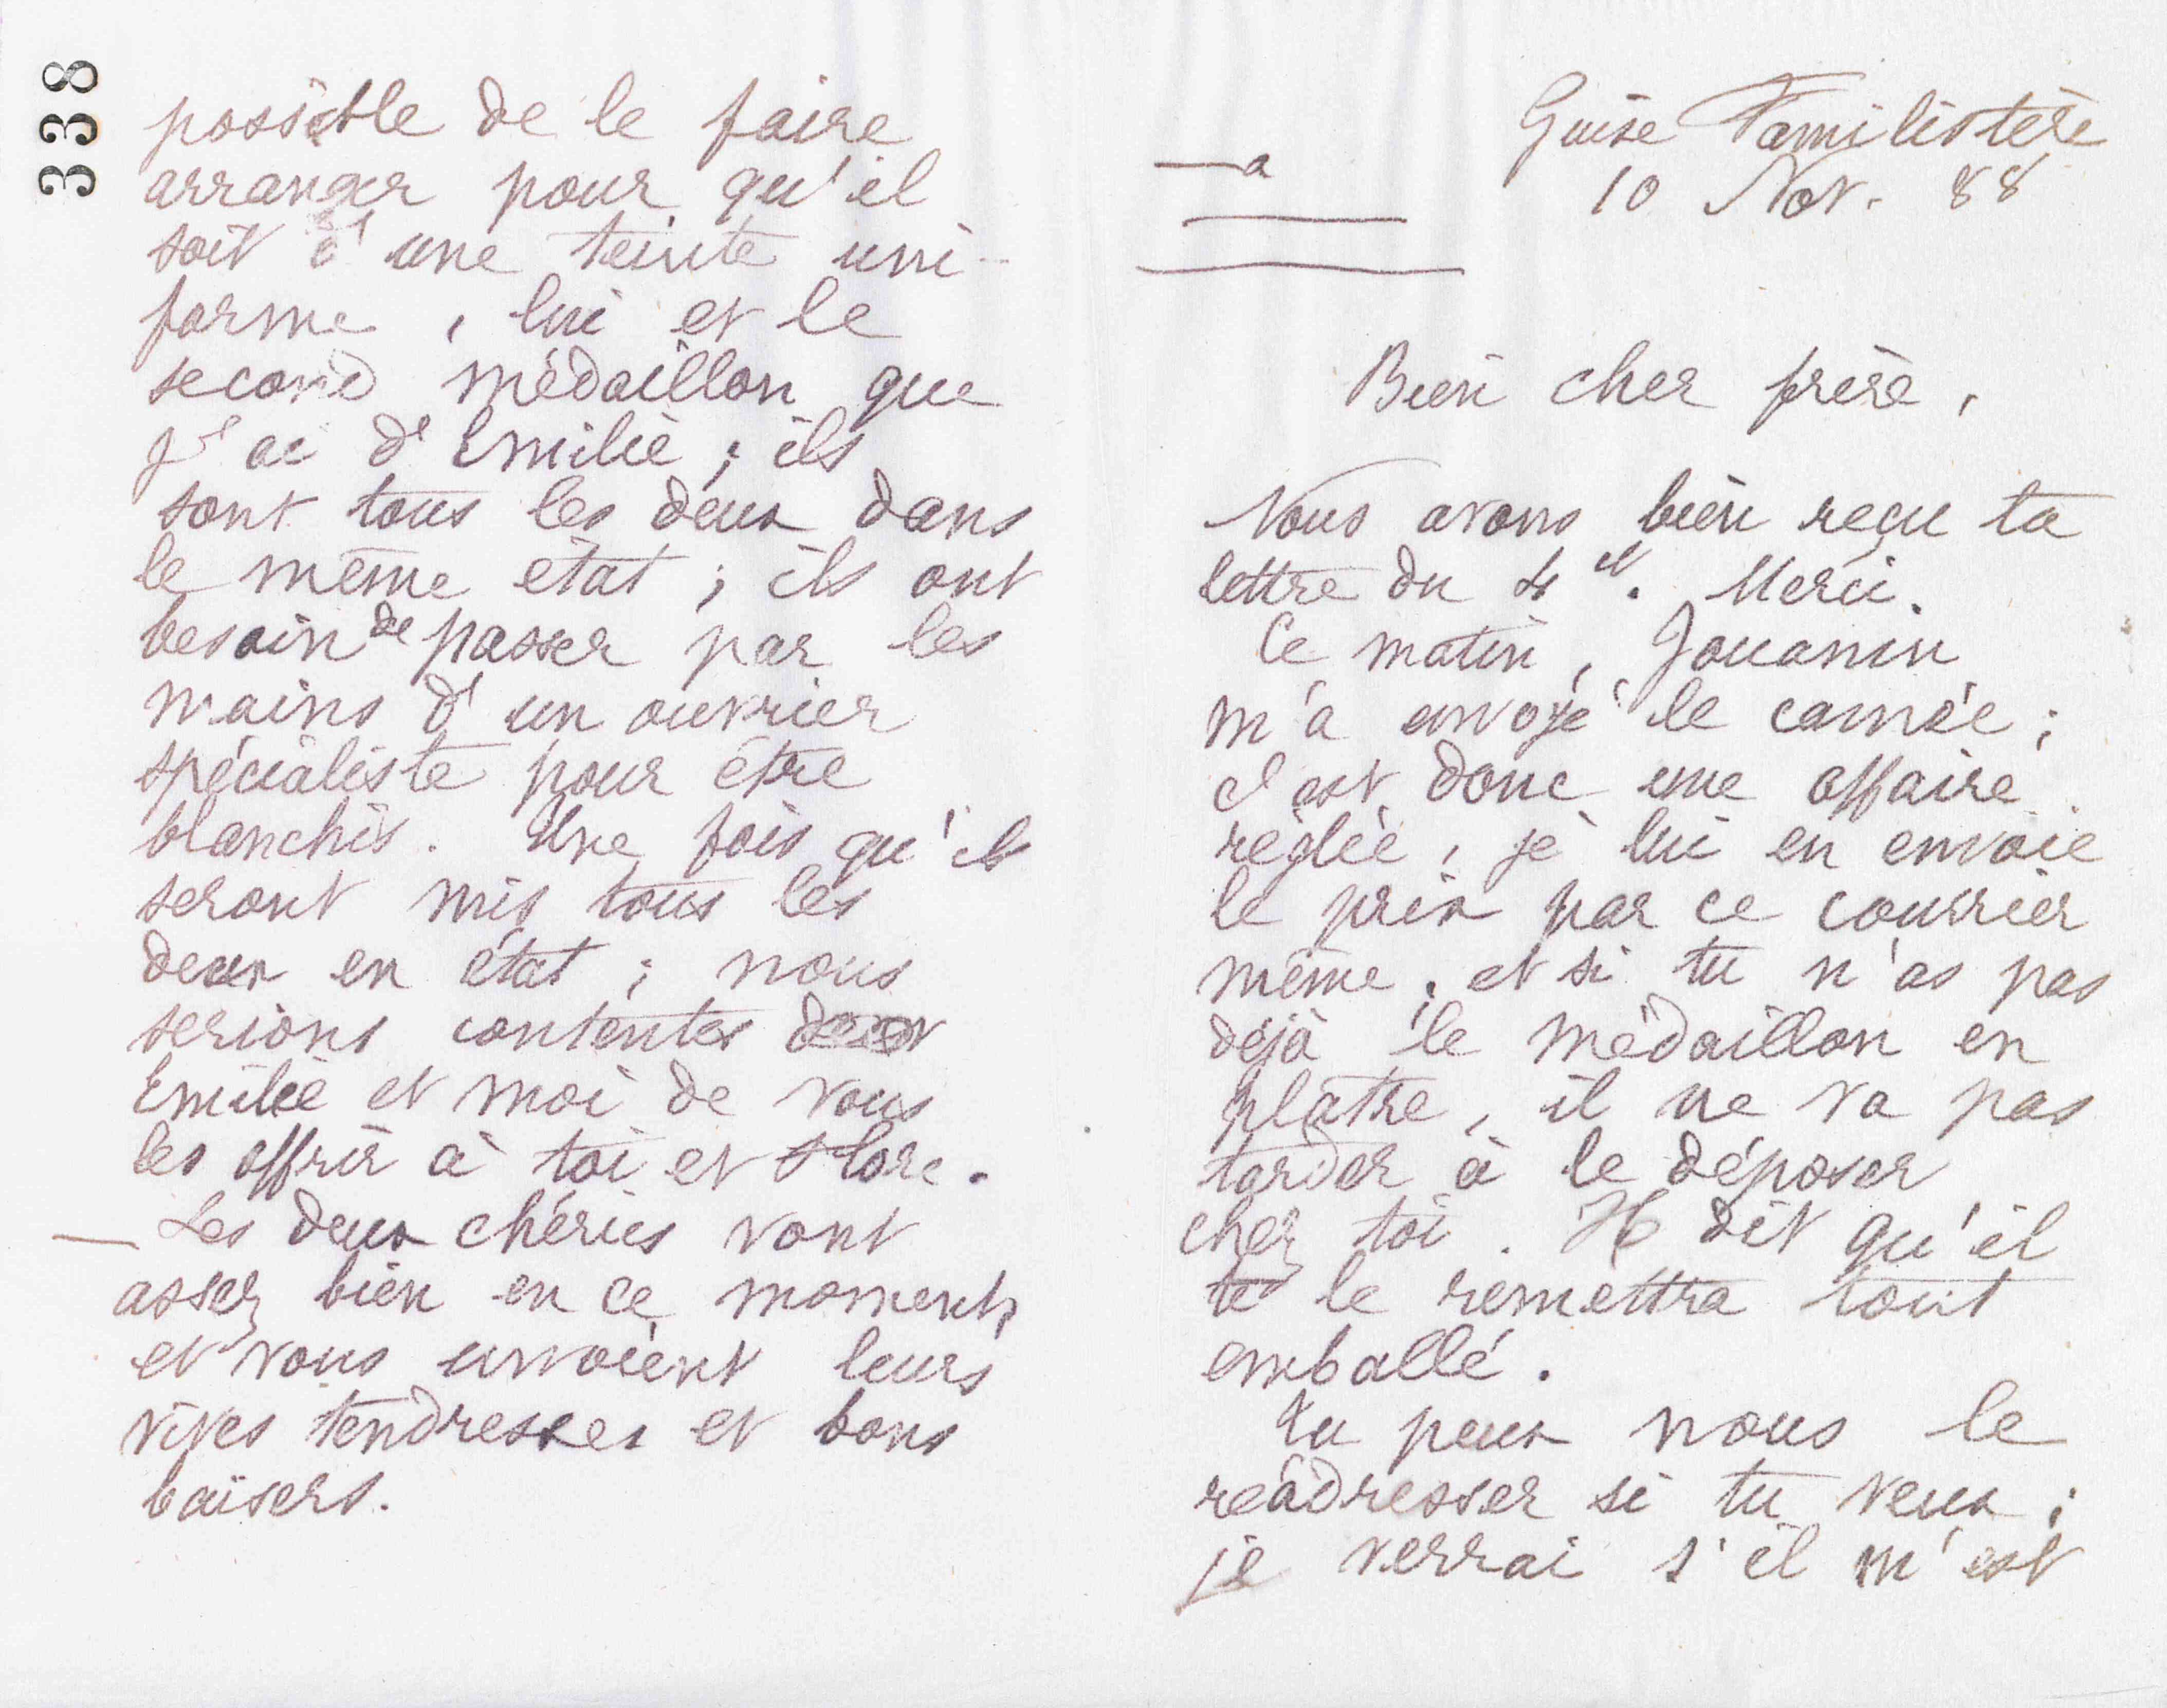 338
—a
Guise Familistère
10 Nov. 88
Bien cher frère,
Nous avons bien reçu ta
lettre du 4 ct. Merci.
Ce matin, Jouanin
m'a envoyé le camée ;
c'est donc une affaire
réglée, je lui en envoie
le prix par ce courrier
même. et si tu n'as pas
déjà le médaillon en
plâtre, il ne va pas
tarder à le déposer
chez toi. Il dit qu'il
te le remettra tout
emballé.
Tu peux nous le
réadresser si tu veux ;
je verrai s'il m'est
possible de le faire
arranger pour qu'il
soit d'une teinte uni-
forme, lui et le
second médaillon que
j'ai d'Emilie ; ils
sont tous les deux dans
le même état ; ils ont
besoin de passer par les
mains d'un ouvrier
spécialiste pour être
blanchis. Une fois qu'ils
seront mis tous les
deux en état ; nous
serions contentes
Emilie et moi de vous
les offrir à toi et Flore.
— Les deux chéries vont
assez bien en ce moment,
et vous envoient leurs
vives tendresses et bons
baisers.